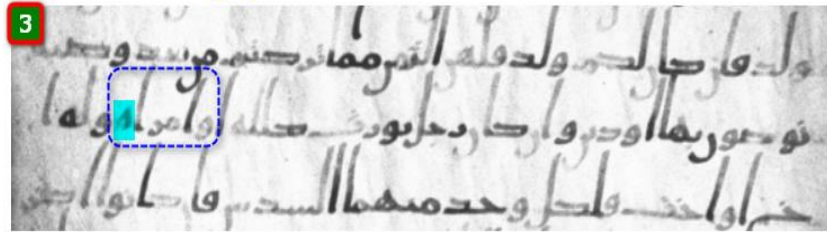 3
ولد فان كان لكم ولد فلهن الثمن مما تركتم من بعد وصيه
توصون بها او دين وان كان رجل يورث كلله او امراه وله ا
خ او اخت فلكل وحد منهما السدس فان كانوا اكثر